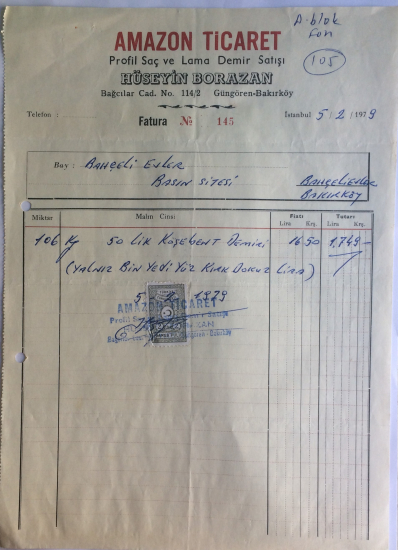 A-blok
105
AMAZON TİCARET
Profil Saç ve Lama Demir Satışı
HÜSEYİN BORAZAN
Bağcılar Cad. No. 114/2 Güngören-Bakırköy
Telefon :
Fatura № 145
İstanbul 5/2/1979
Bay : BAHÇELİ EVLER
BASIN SİTESİ
BAHÇELİEVLER
BAKIRKÖY
Miktar Malın Cinsi Fiatı Tutarı
Lira Krş. Lira Krş.
106 Kg 50 Lik KÖŞEBENT DEMİRİ 16 50 1.749-
(YALNIZ BİN YEDİ YÜZ KIRK DOKUZ LİRA)
1979
AMAZON TİCARET